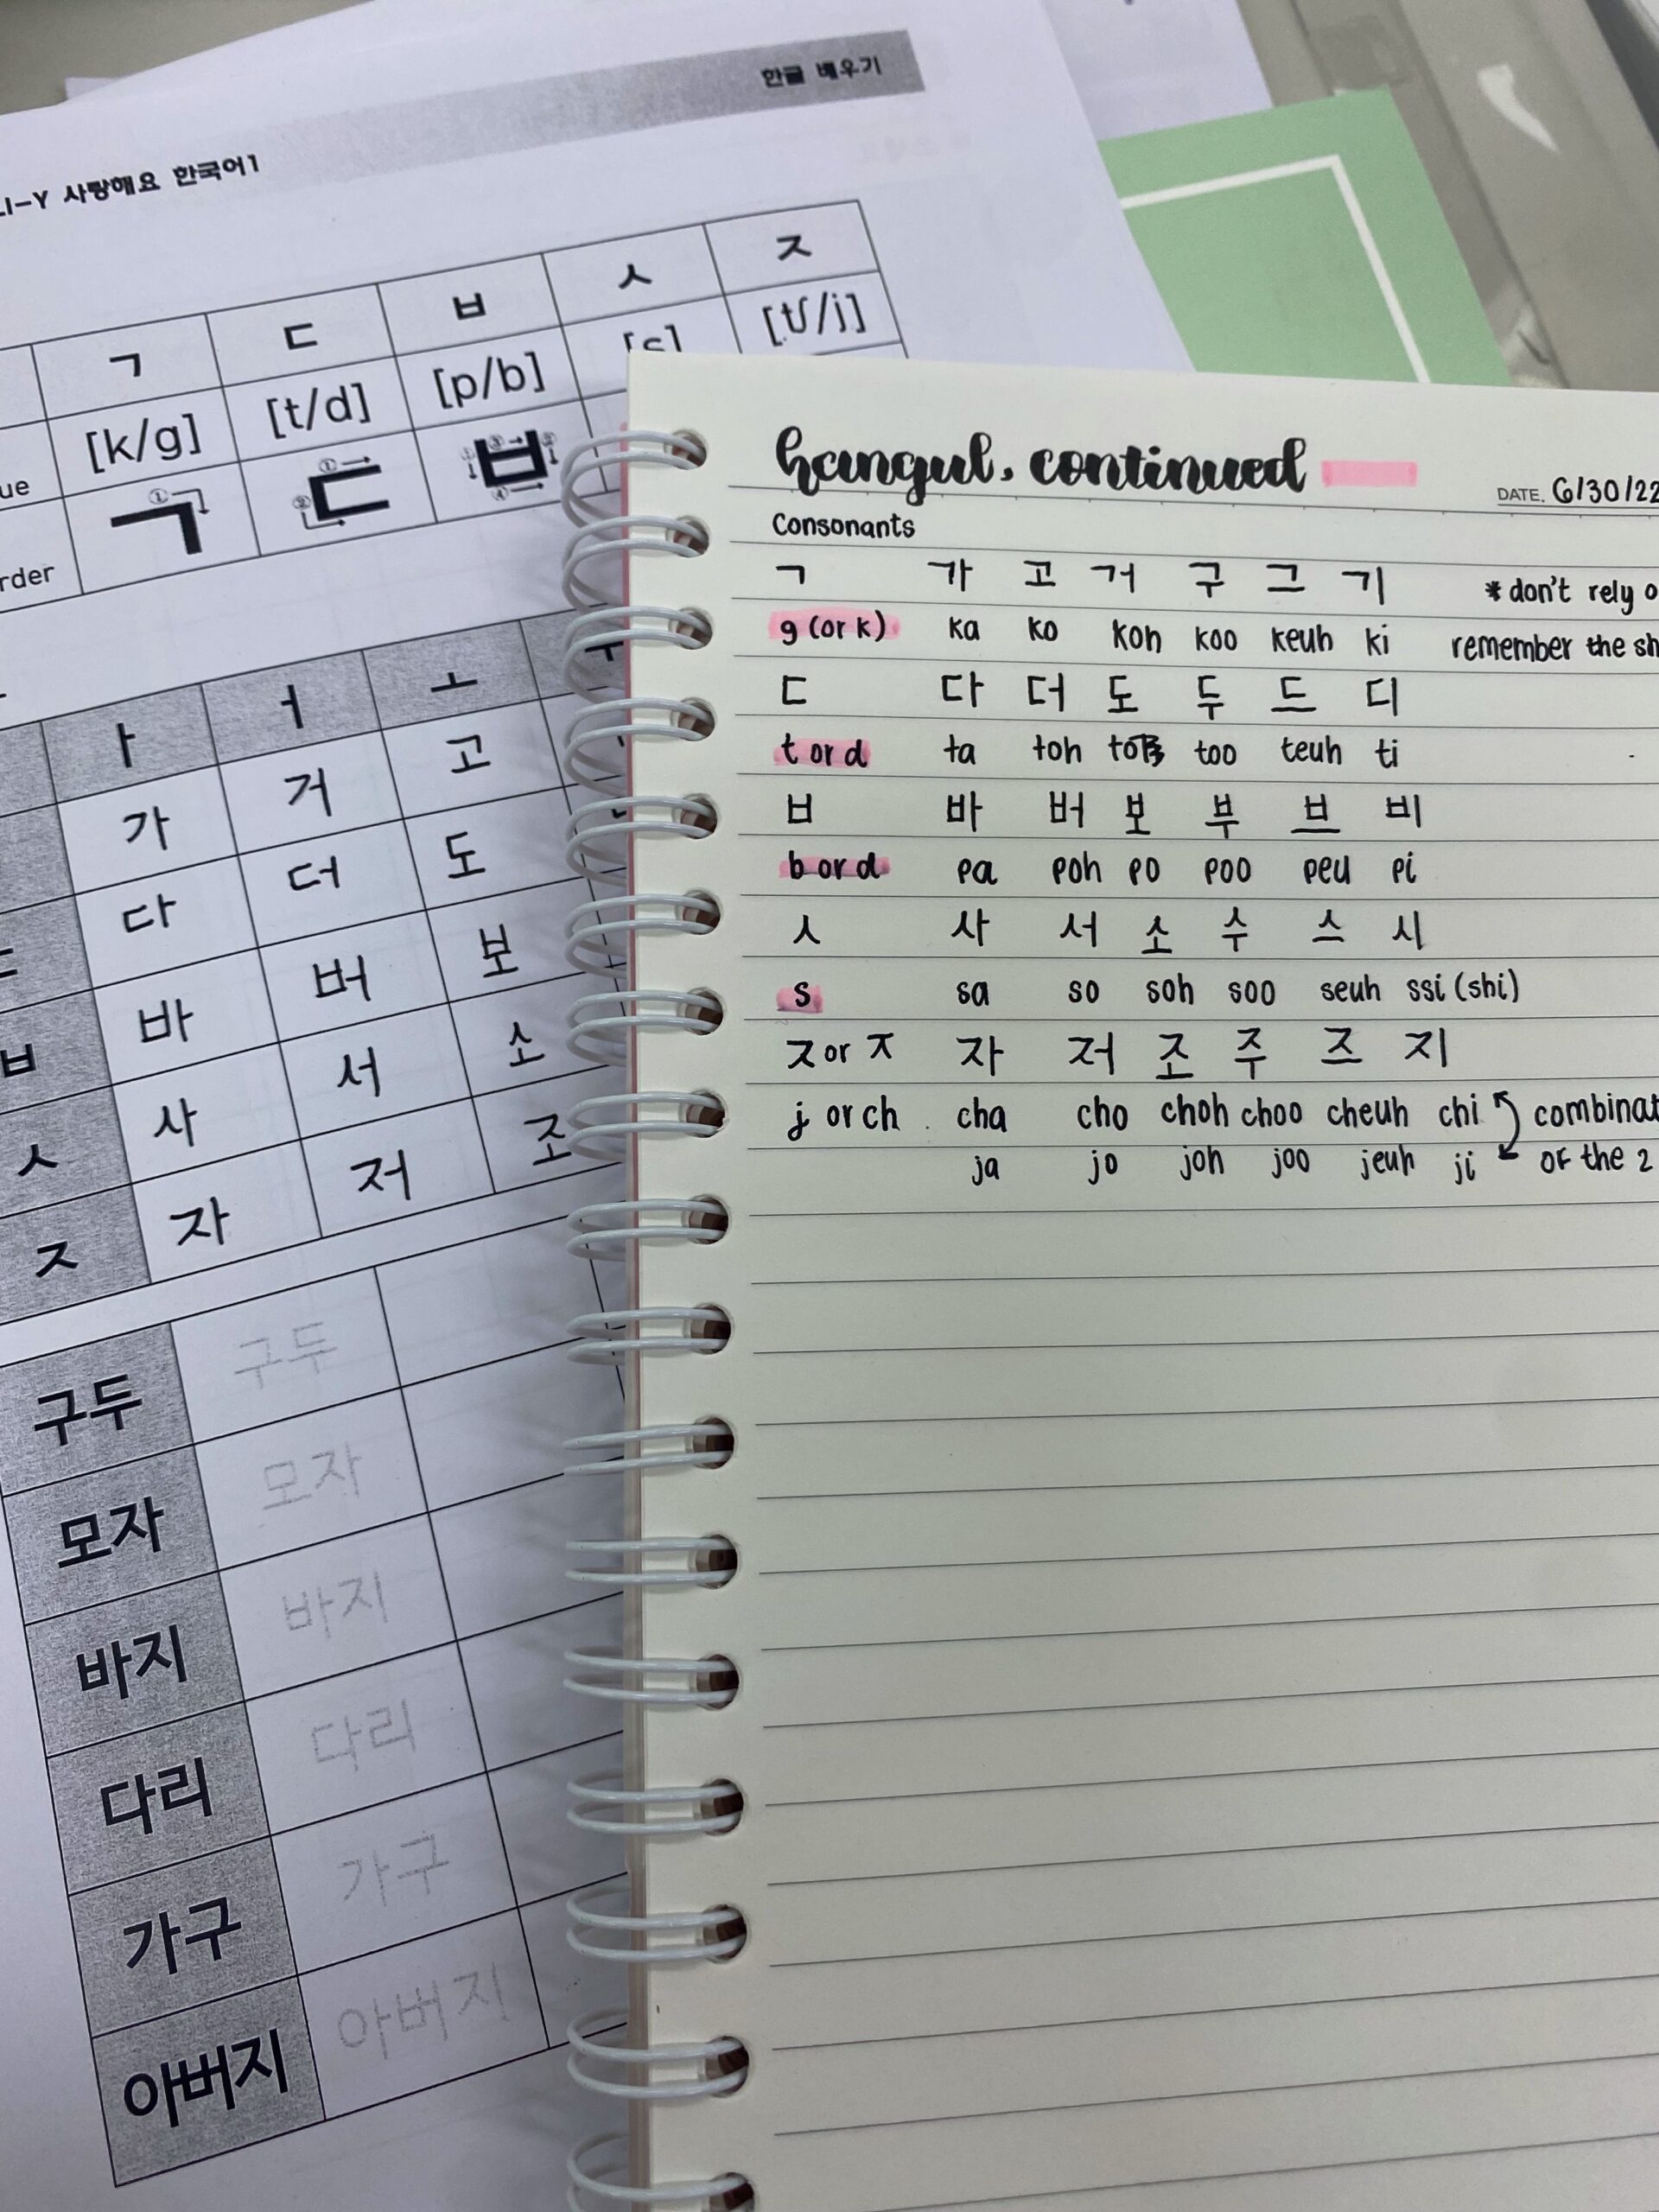 한글 배우기
LI-Y 사랑해요 한국어1
ㄱ ㄷ ㅂ ㅅ ㅈ
ue [k/g] [t/d] [p/b] [s] [tʃ/j]
rder ① ① ② ① ② ③ ④
ㅏ ㅓ ㅗ ㅜ
가 거 고
ㄷ 다 더 도
ㅂ 바 버 보
ㅅ 사 서 소
ㅈ 자 저 조
구두 구두
모자 모자
바지 바지
다리 다리
가구 가구
아버지 아버지
hangul, continued
DATE. 6/30/22
Consonants
ㄱ 가 고 거 구 그 기 * don't rely o
g (or k) ka ko koh koo keuh ki remember the sh
ㄷ 다 더 도 두 드 디
t or d ta toh to too teuh ti
ㅂ 바 버 보 부 브 비
b or d pa poh po poo peu pi
ㅅ 사 서 소 수 스 시
s sa so soh soo seuh ssi (shi)
ㅈ or ㅈ 자 저 조 주 즈 지
j or ch cha cho choh choo cheuh chi combinat
ja jo joh joo jeuh ji of the 2